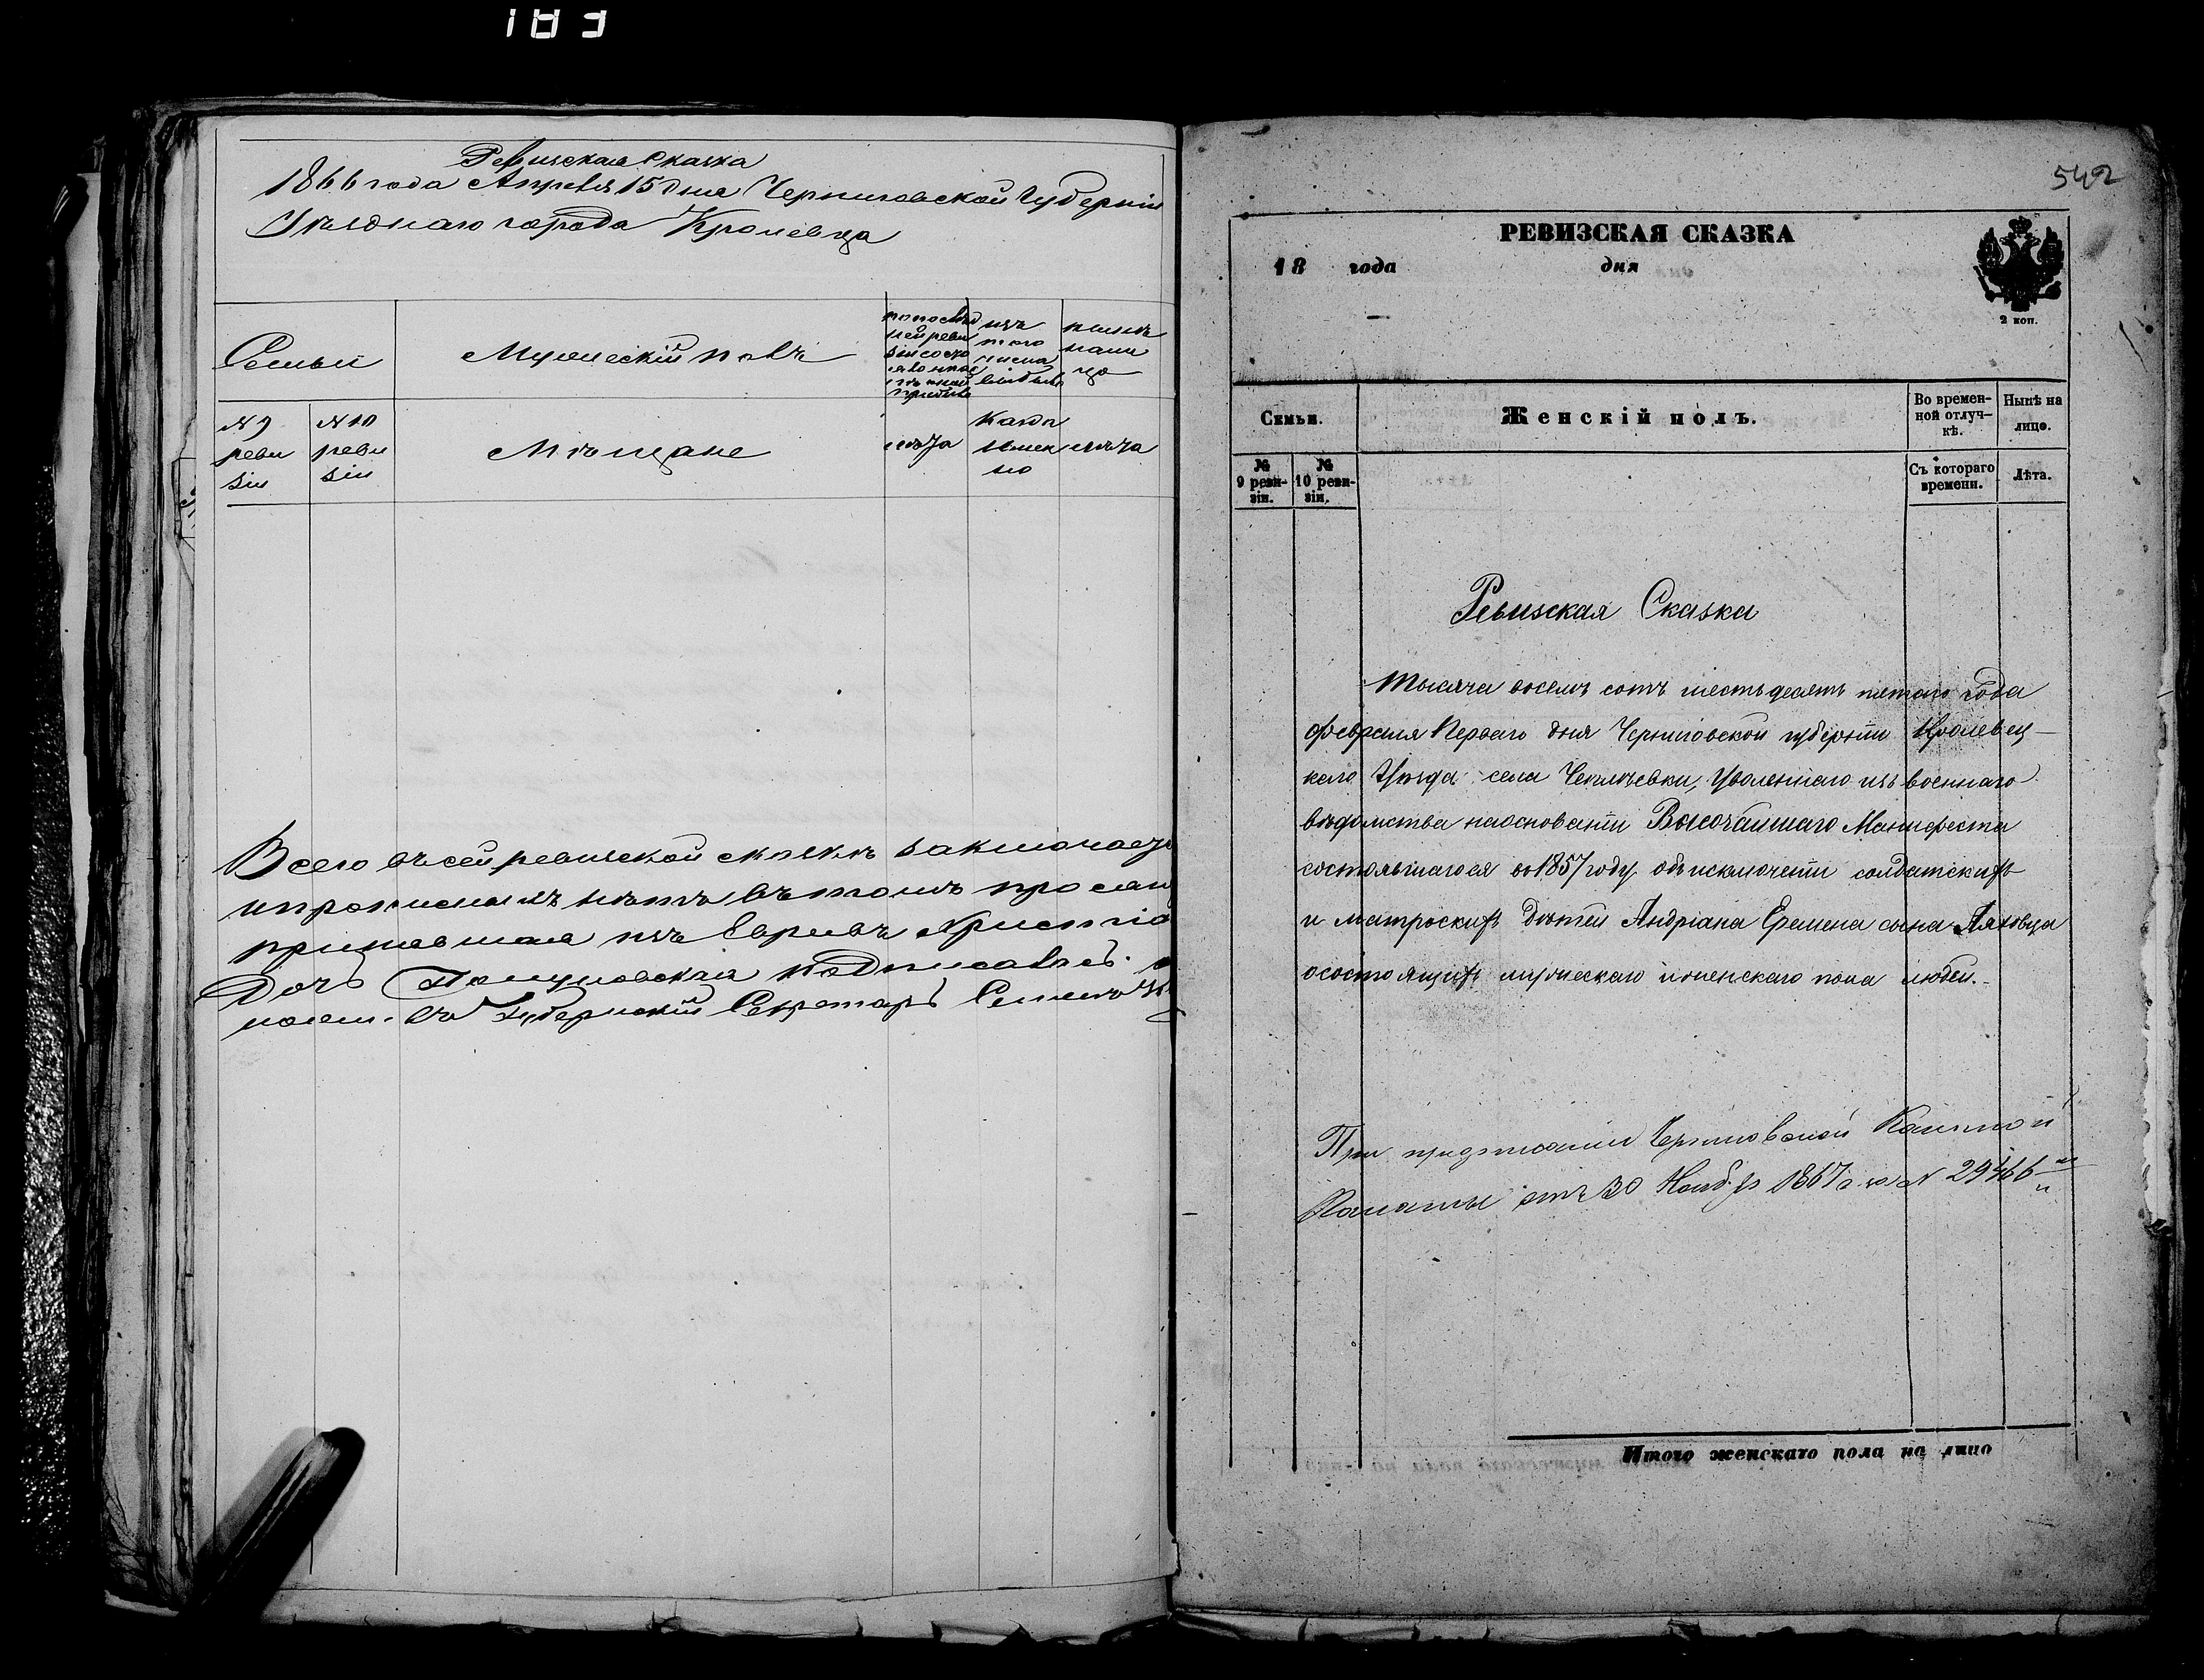 183
Ревизская Сказка
1866 года Апреля 15 дня Черниговской Губерніи
Уѣзднаго города Кролевца
Семьи
Мужескій полъ
№ 9 реви зіи
№ 10 реви зіи
Мѣщане
лѣта
Когда имен но
лѣта
Всего въ сей ревизской сказкѣ заключается
и прописныхъ нѣтъ въ томъ
принявшая изъ Евреевъ
Дочь подписалась.
Губернскій Секретарь
542
РЕВИЗСКАЯ СКАЗКА
18 года дня
2 коп.
Семьи.
Женскій полъ.
Во времен-
ной отлуч-
кѣ.
Нынѣ на
лицо.
№
9 реви-
зіи.
№
10 реви-
зіи.
Съ котораго
времени.
Лѣта.
Ревизская Сказка
Тысяча восемъ сотъ шестьдесятъ пятаго года
февраля Перваго дня Черниговской губерніи Кролевец-
каго Уѣзда села уволеннаго изъ военнаго
вѣдомства наоснованіи Высочайшаго Манифеста
состоявшагося въ 1857 году объ исключеніи солдатскихъ
и матроскихъ дѣтей Андріана Еремена сына Ляховца
осостоящихъ мужескаго и женскаго пола людей.
При предписаніи Черниговской Казенной
Палаты отъ 30 Нояб. 1867 г. за № 29466
Итого женскаго пола на лицо